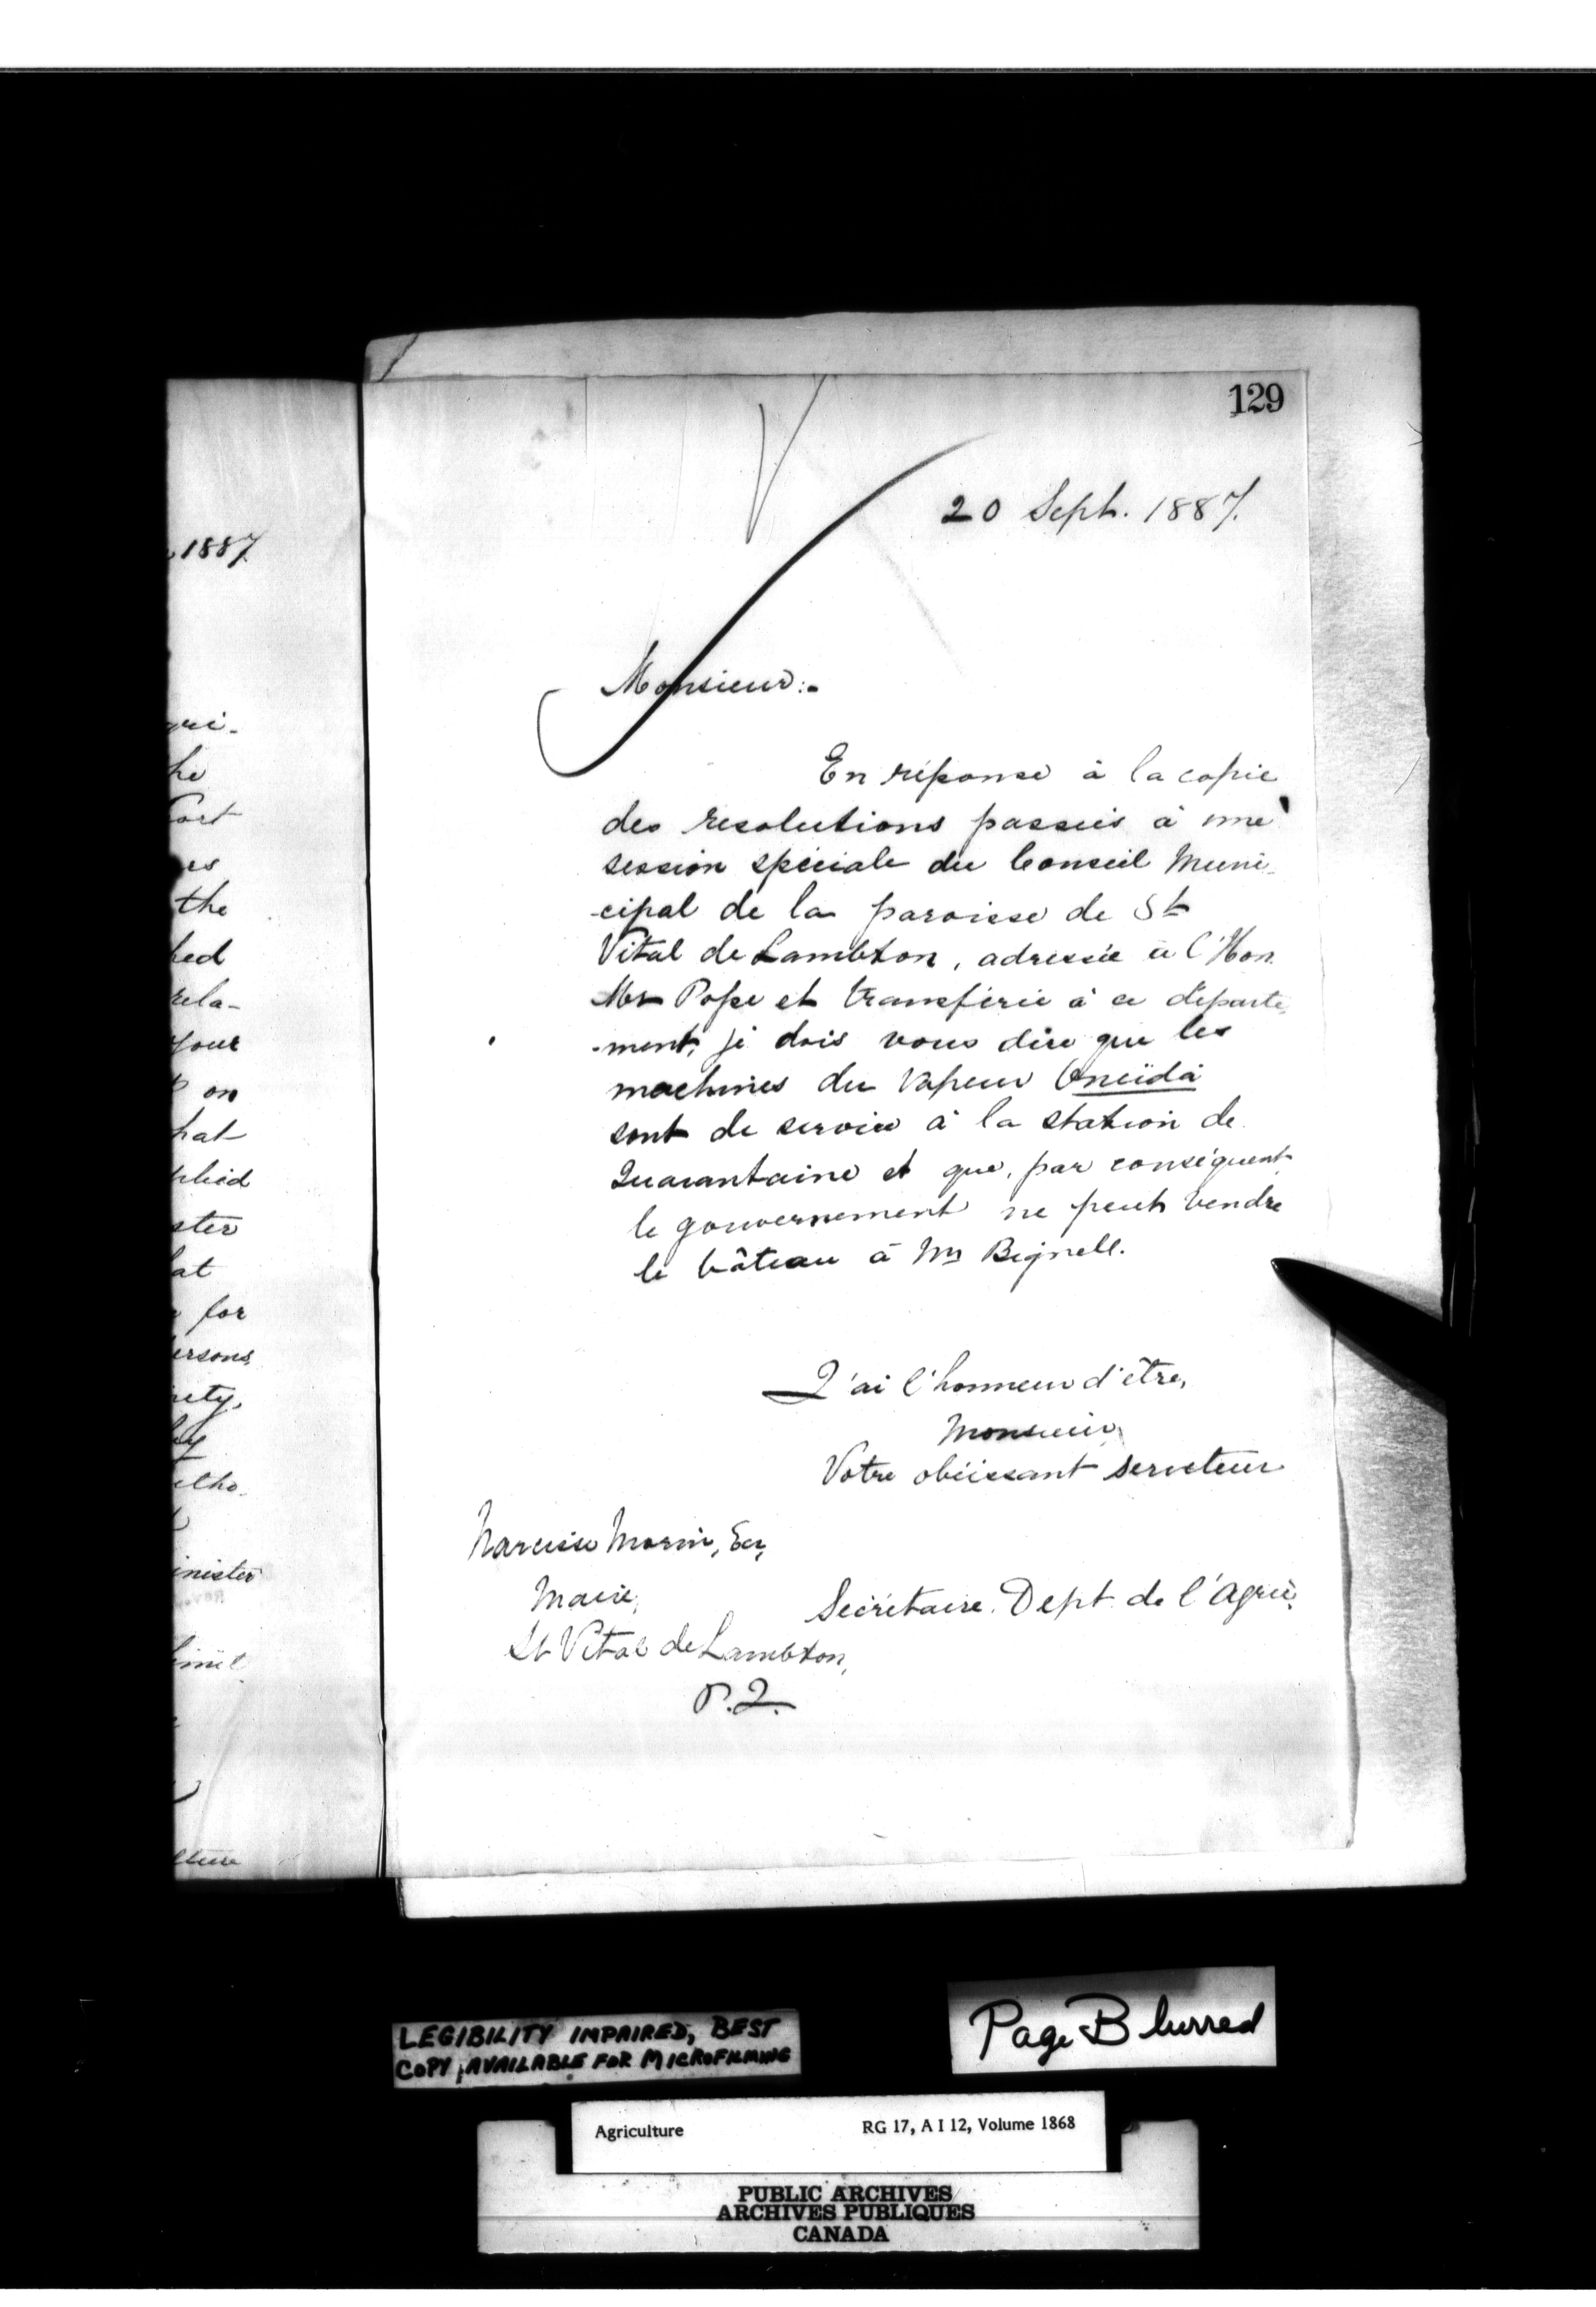 129
20 Sept. 1887.
Monsieur:-
En réponse à la copie
des resolutions passées à une
session spéciale du Conseil Muni-
-cipal de la paroisse de St
Vital de Lambton, adressée à l'Hon.
Mr Pope et transférée à ce départe-
-ment, je dois vous dire que les
machines du vapeur Oneïda
sont de service à la station de
Quarantaine et que, par conséquent
le gouvernement ne peut vendre
le bâteau à Mr Bignell.
J'ai l'honneur d'être,
Monsieur,
Votre obéissant serviteur
Narcisse Morin, Ecr,
Maire,
Secrétaire. Dept. de l'Agric.
St Vital de Lambton,
P.Q.
1887
gri-
he
the
rela-
your
on
hat
ster
at
for
ersons
inister
lture
LEGIBILITY IMPAIRED, BEST
COPY AVAILABLE FOR MICROFILMING
Page Blurred
Agriculture RG 17, A I 12, Volume 1868
PUBLIC ARCHIVES
ARCHIVES PUBLIQUES
CANADA